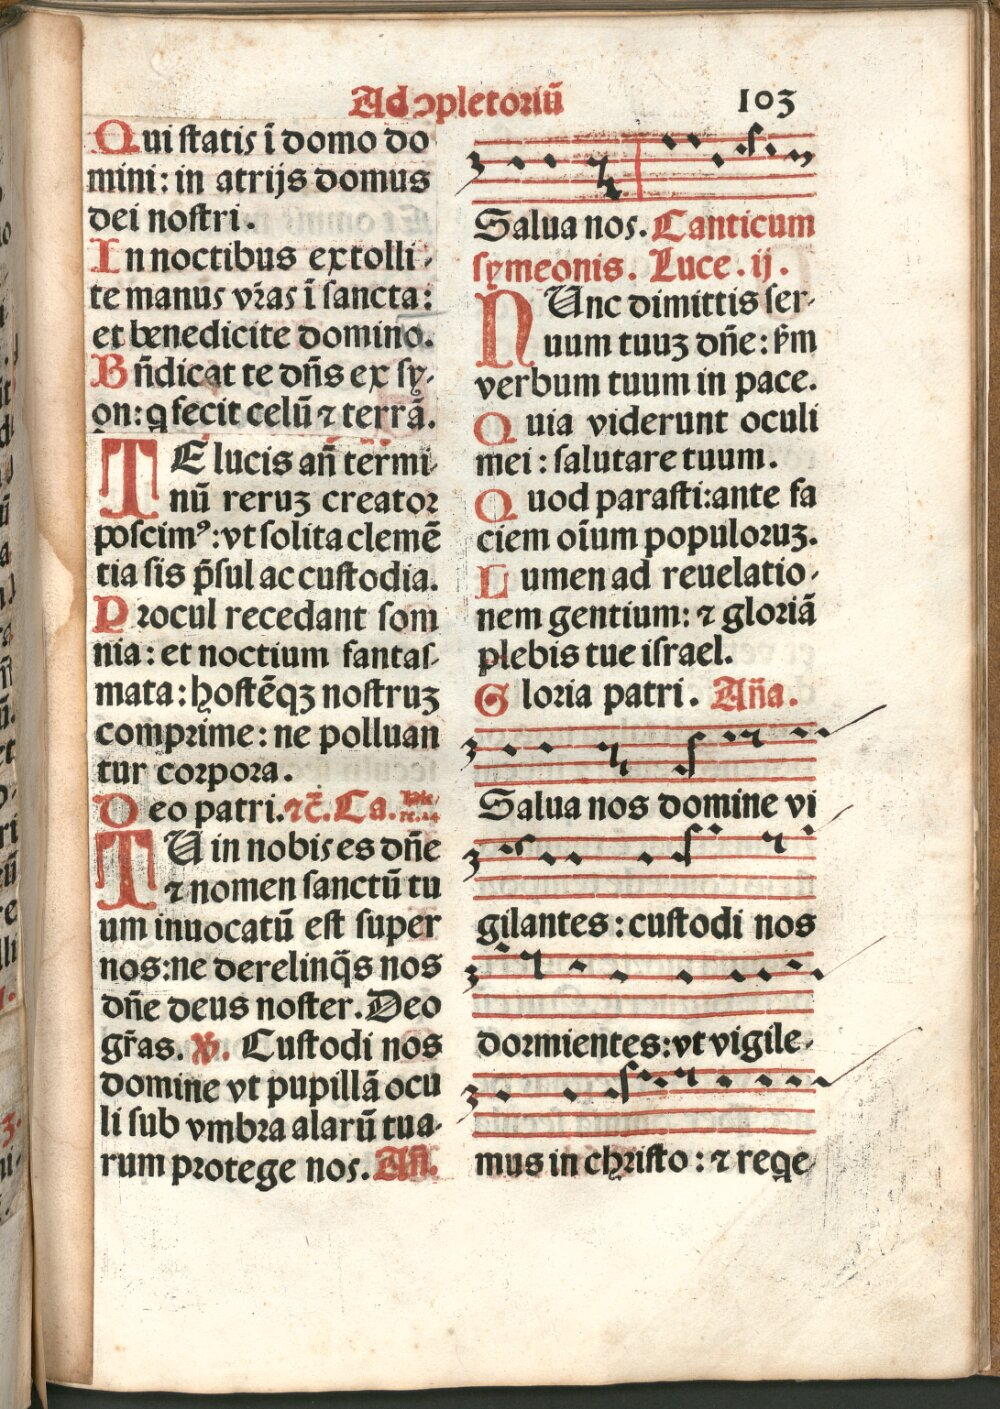 Ad ↄpletoriũ 103
Qui statis ĩ domo do
mini: in atrijs domus
dei nostri.
In noctibus extolli-
te manus vr̃as ĩ sancta:
et benedicite domino.
Bñdicat te dñs ex sy-
on: q̇ fecit celũ ⁊ terrã.
TE lucis añ term̃i-
nũ reruꝫ creator
poscimꝰ: vt solita clemẽ
tia sis p̃sul ac custodia.
Procul recedant som
nia: et noctium fantas-
mata: hostẽqꝫ nostruꝫ
comprime: ne polluan
tur corpora.
Deo patri. ⁊c̃. Ca. Hie-
re. 14
TU in nobis es dñe
⁊ nomen sanctũ tu
um inuocatũ est super
nos: ne derelinq̃s nos
dñe deus noster. Deo
gr̃as. ℣. Custodi nos
domine vt pupillã ocu
li sub vmbra alarũ tua-
rum protege nos. Añ.
Salua nos. Canticum
symeonis. Luce. ij.
NUnc dimittis ser-
uum tuuꝫ dñe: s̃m
verbum tuum in pace.
Quia viderunt oculi
mei: salutare tuum.
Quod parasti: ante fa
ciem oĩum populoruꝫ.
Lumen ad reuelatio-
nem gentium: ⁊ gloriã
plebis tue israel.
Gloria patri. Aña.
Salua nos domine vi
gilantes: custodi nos
dormientes: vt vigile-
mus in christo: ⁊ reqe-